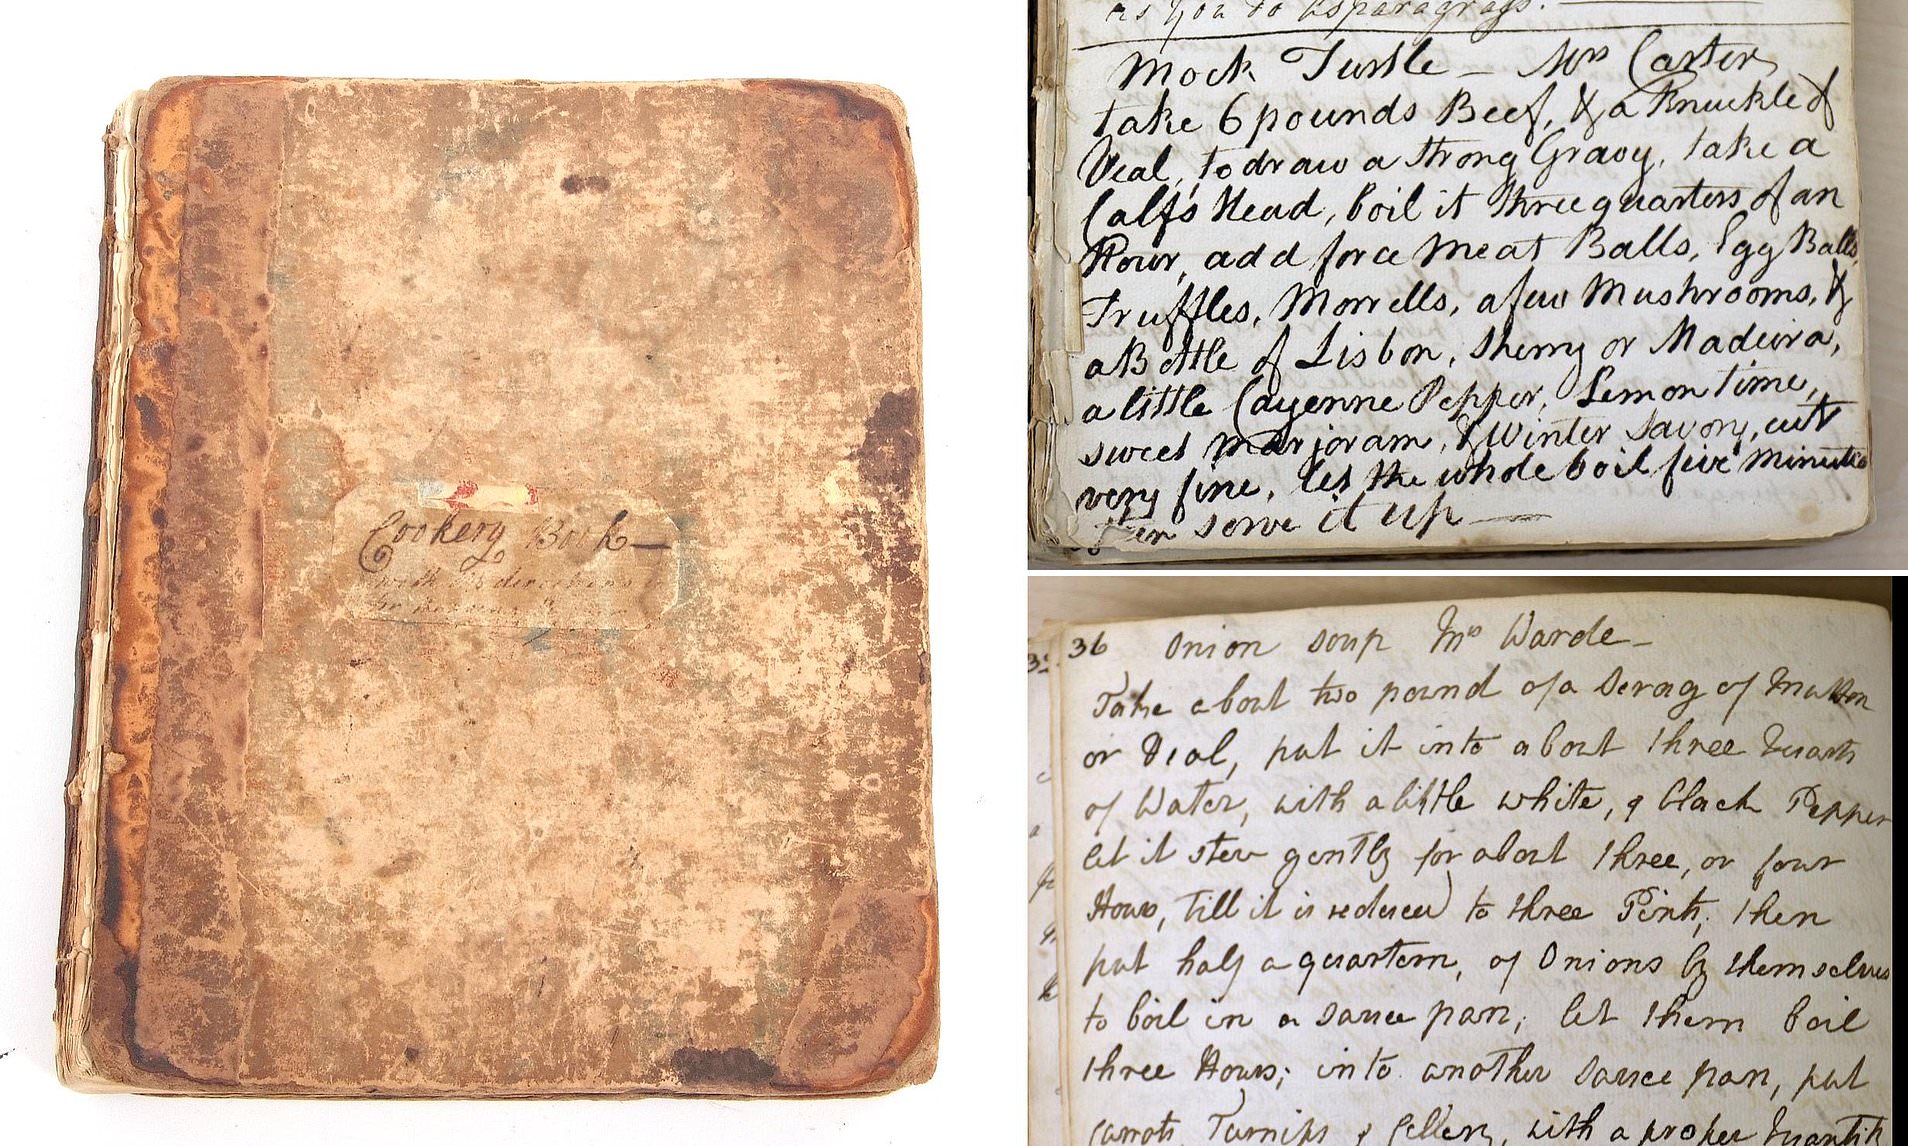 Cookery Book —
with
as you do asparagrass. —
Mock Turtle — Mrs Carter
take 6 pounds Beef, & a Knuckle of
Veal, to draw a strong Gravy, take a
Calfs Head, boil it three quarters of an
Hour, add force meat Balls, Egg Balls,
Truffles, Morrells, a few Mushrooms, &
a Bottle of Lisbon, Sherry or Madeira,
a little Cayenne Pepper, Lemon time,
sweet marjoram, & Winter Savory, cut
very fine, let the whole boil five minutes
then serve it up —
36 Onion soup Mrs Warde —
Take about two pound of a Scrag of Mutton
or Veal, put it into about three Quarts
of Water, with a little white, & black Pepper
let it stew gently for about three, or four
Hours, till it is reduced to three Pints, then
put half a quartern, of Onions by themselves
to boil in a sauce pan; let them boil
three Hours; into another sauce pan, put
carrots, Turnips & Cellery, with a proper Quantity